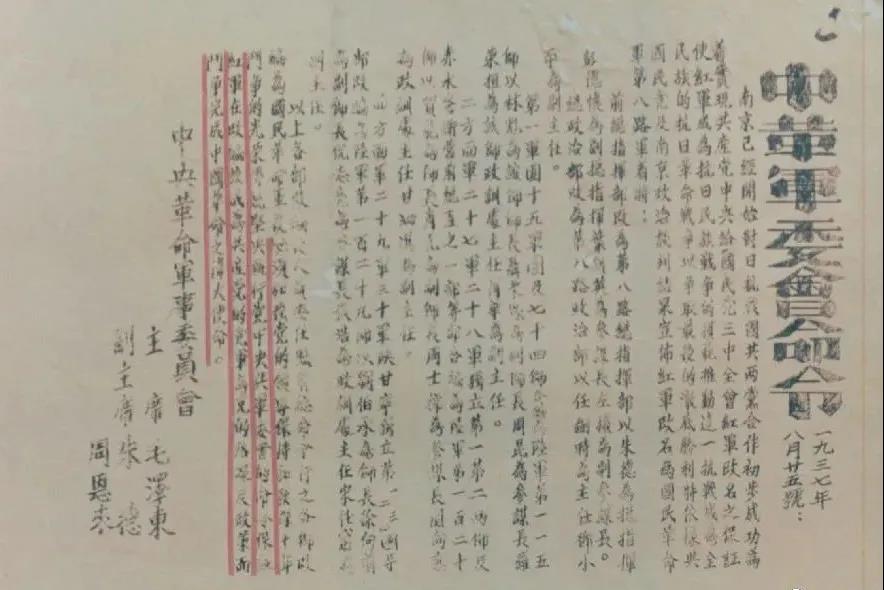 中革軍委會命令
一九三七年
八月廿五號：
南京已經開始對日抗戰國共兩黨合作初步成功為
着實現共產党中央給國民党三中全會紅軍改名之保証
使紅軍成為抗日民族戰爭的模範推動這一抗戰成為全
民族的抗日革命戰爭以爭取最後的澈底勝利特依據與
國民党及南京政治談判結果宣佈紅軍改名為國民革命
軍第八路軍着將：
前總指揮部改為第八路總指揮部以朱德為總指揮
彭德懷為副總指揮葉劍英為參謀長左權為副參謀長。
總政治部改為第八路政治部以任弼時為主任鄧小
平為副主任。
第一軍團十五軍團及七十四師合編為陸軍第一一五
師以林彪為該師師長聶榮臻為副師長周昆為參謀長羅
榮桓為該師政訓處主任肖華為副主任。
二方面軍二十七軍二十八軍獨立第一第二兩師及
赤水警衛營前總直之一部等部合編為陸軍第一百二十
師以賀龍為師長肖克為副師長周士梯為參謀長關向應
為政訓處主任甘泗淇為副主任。
四方面軍二十九軍三十軍陝甘寧獨立第一二三四等
部改編為陸軍第一百二十九師以劉伯承為師長徐向前
為副師長倪志亮為參謀長張浩為政訓處主任宋任窮為
副主任。
以上各部改編後人員委任照前總命令行之各部改
編為國民革命軍後必須加強党的領導保持和發揚十年
鬥爭的光榮傳統堅決執行党中央與軍委會的命令保証
紅軍在改編後成為共產党的党軍為党的路線及政策而
鬥爭完成中國革命之偉大使命。
中央革命軍事委員會
主席毛澤東
副主席朱德
周恩來